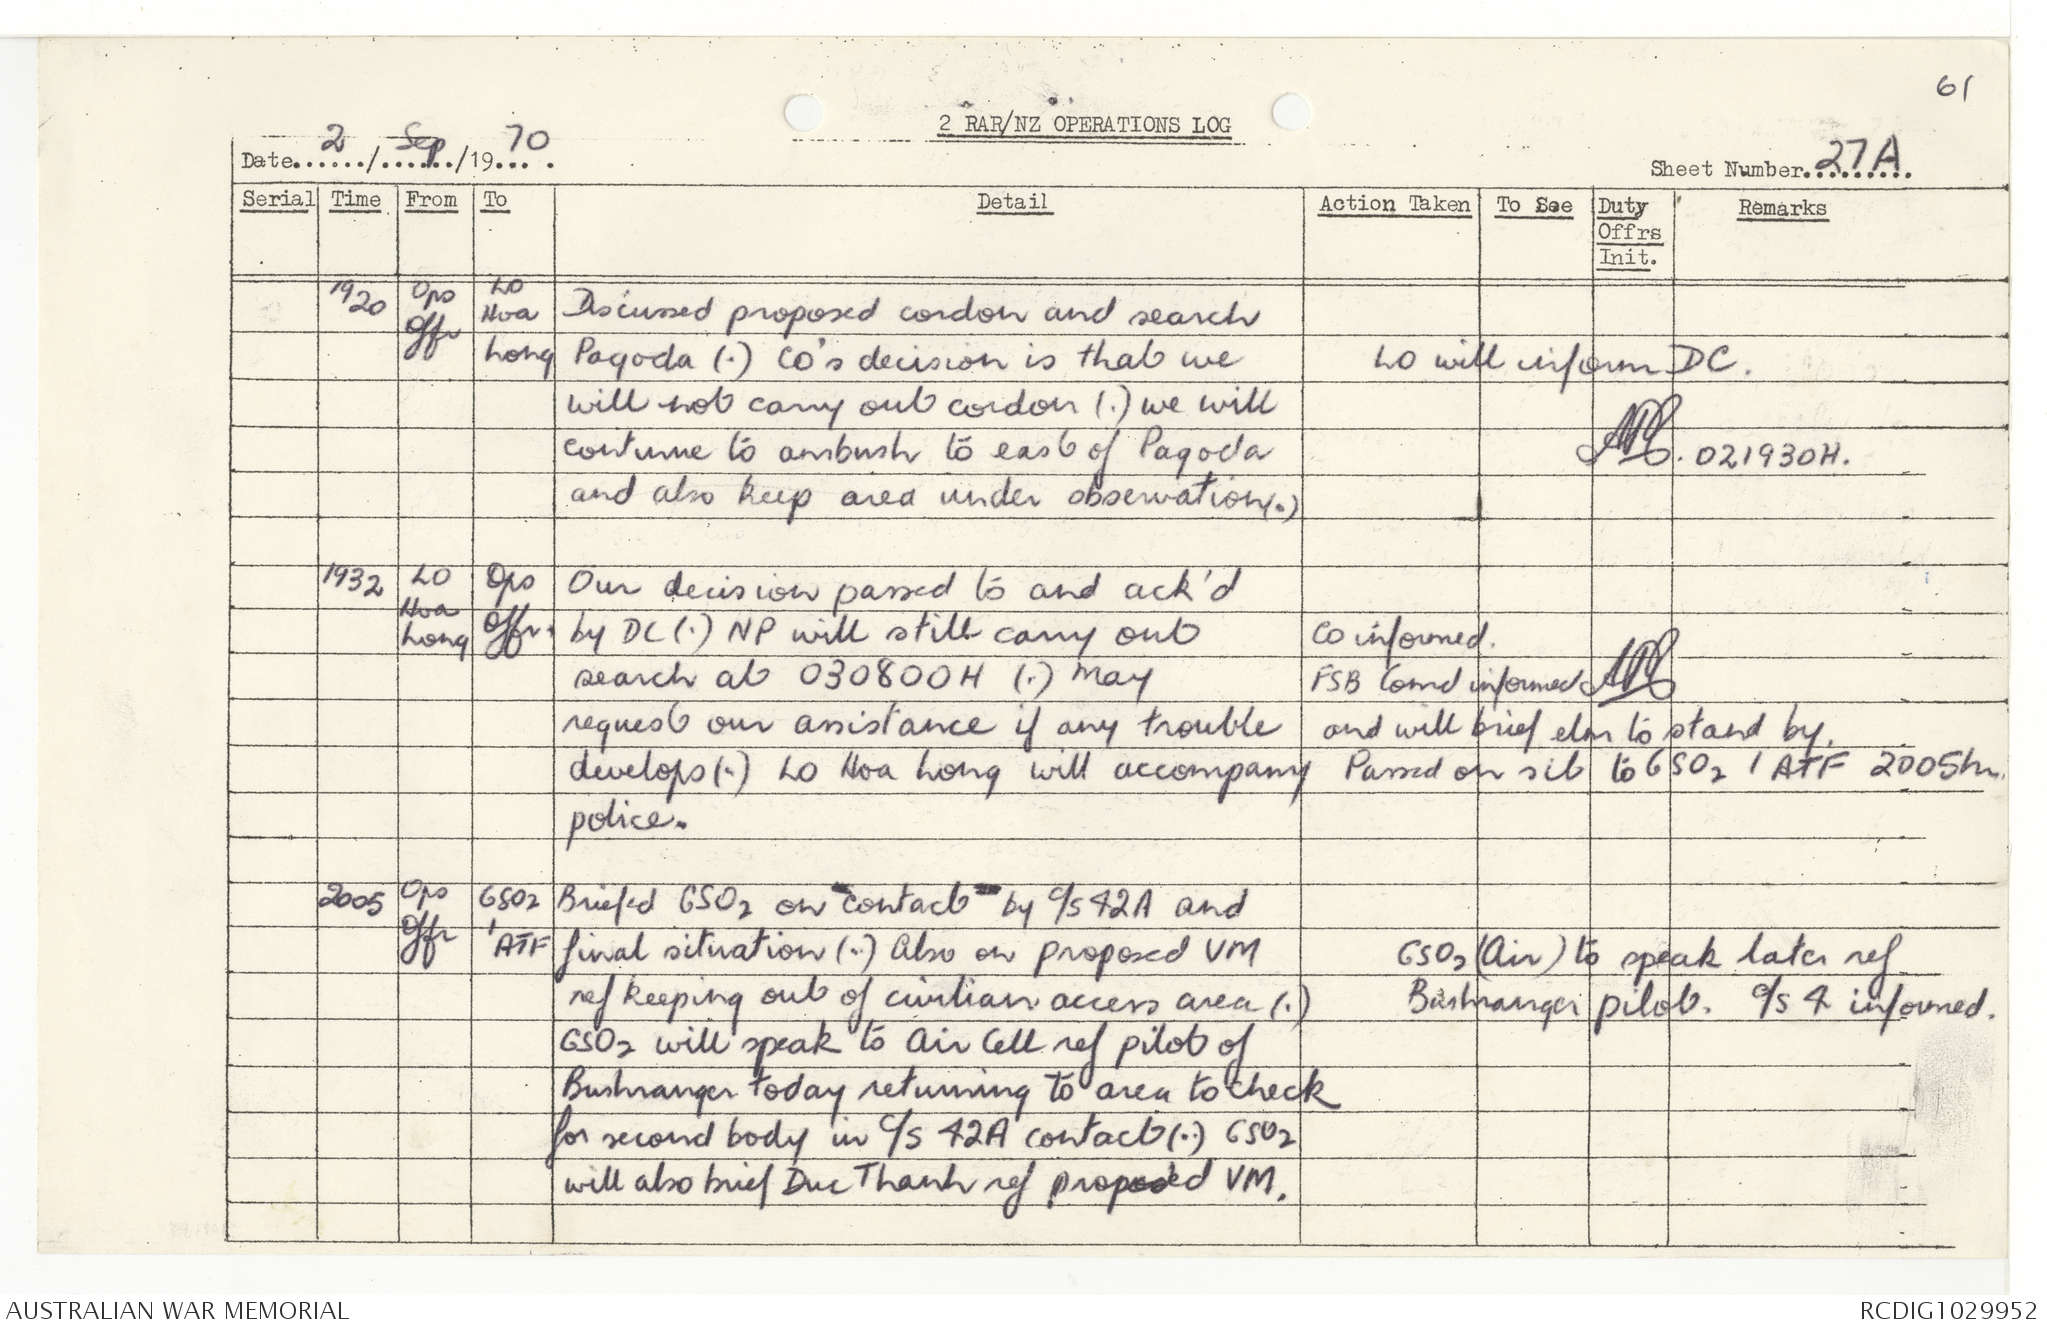 61
2 RAR/NZ OPERATIONS LOG
Date 2 / Sep /19 70
Sheet Number 27A
Serial Time From To Detail Action Taken To See Duty Offrs Init. Remarks
1920 Ops Offr LO Hoa Long
Discussed proposed cordon and search
Pagoda (.) CO's decision is that we
will not carry out cordon (.) we will
continue to ambush to east of Pagoda
and also keep area under observation (.)
LO will inform DC.
021930H.
1932 LO Hoa Long Ops Offr.
Our decision passed to and ack'd
by DC (.) NP will still carry out
search at 030800H (.) May
request our assistance if any trouble
develops (.) LO Hoa Long will accompany
police.
CO informed.
FSB Comd informed
and will brief elm to stand by.
Passed on sit to GSO2 1 ATF 2005hr.
2005 Ops Offr GSO2 1 ATF
Briefed GSO2 on contact by c/s 42A and
final situation (.) Also on proposed VM
ref keeping out of civilian access area (.)
GSO2 will speak to Air Cell ref pilot of
Bushranger today returning to area to check
for second body in c/s 42A contact (.) GSO2
will also brief Duc Thanh ref proposed VM.
GSO2 (Air) to speak later ref
Bushranger pilot. c/s 4 informed.
AUSTRALIAN WAR MEMORIAL
RCDIG1029952